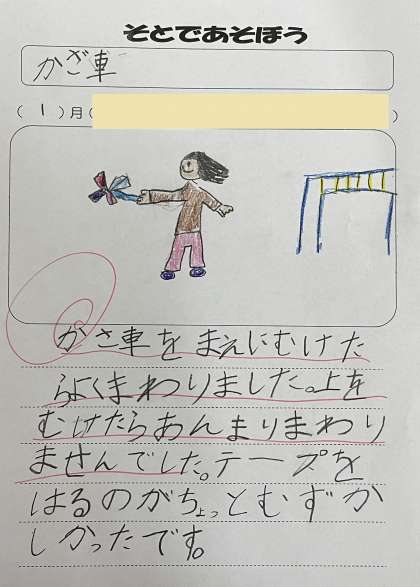 そとであそぼう
かざ車
( 1 )月( )
かざ車をまえにむけた
らよくまわりました。上を
むけたらあんまりまわり
ませんでした。テープを
はるのがちょっとむずか
しかったです。